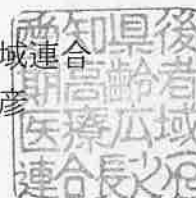 域連合
彦
愛知県後
期高齢者
医療広域
連合長之印